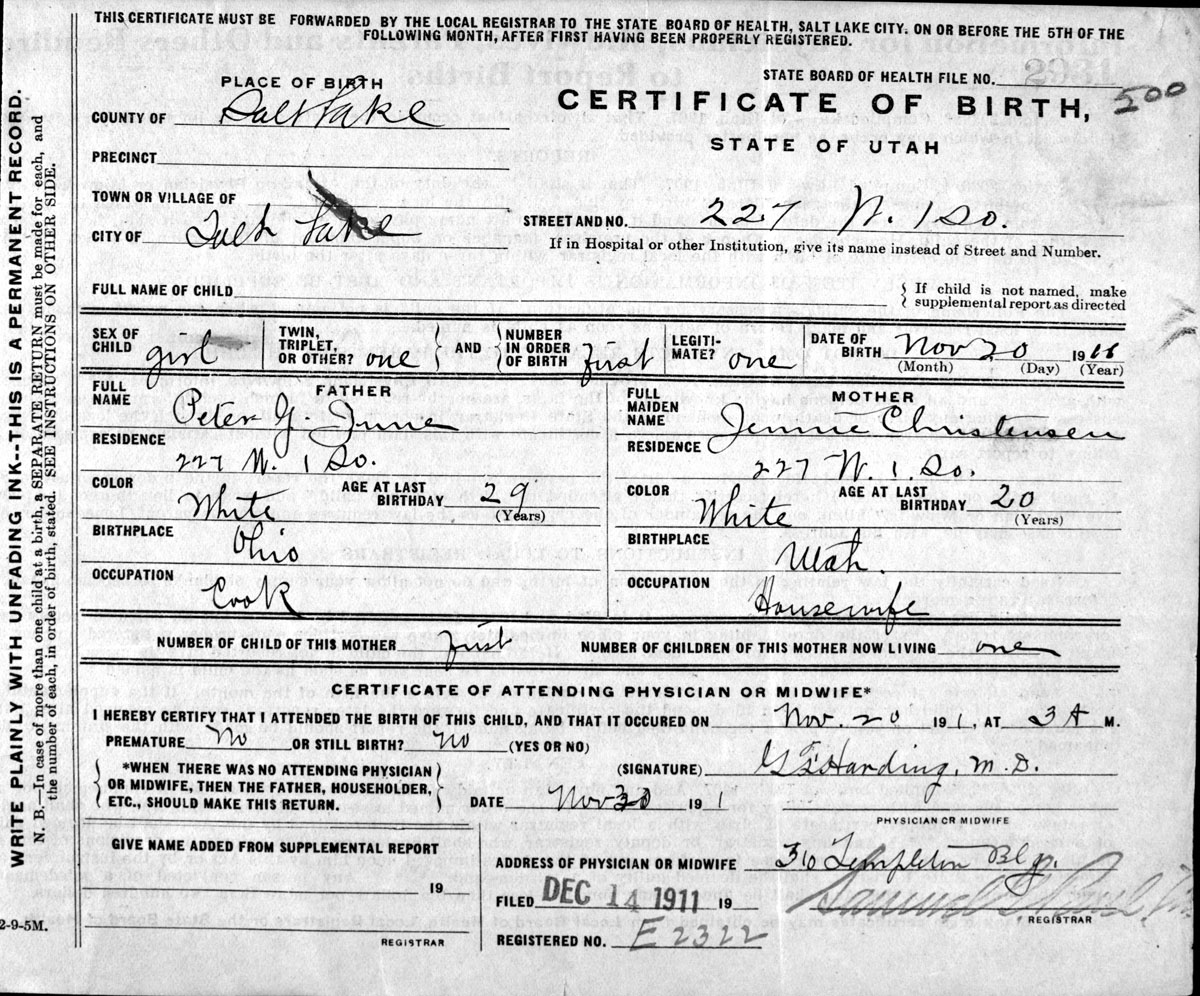 THIS CERTIFICATE MUST BE FORWARDED BY THE LOCAL REGISTRAR TO THE STATE BOARD OF HEALTH, SALT LAKE CITY, ON OR BEFORE THE 5TH OF THE
FOLLOWING MONTH, AFTER FIRST HAVING BEEN PROPERLY REGISTERED.
WRITE PLAINLY WITH UNFADING INK--THIS IS A PERMANENT RECORD.
N. B.—In case of more than one child at a birth, a SEPARATE RETURN must be made for each, and
the number of each, in order of birth, stated. SEE INSTRUCTIONS ON OTHER SIDE.
PLACE OF BIRTH
STATE BOARD OF HEALTH FILE NO.
CERTIFICATE OF BIRTH, 500
COUNTY OF Salt Lake
STATE OF UTAH
PRECINCT
TOWN OR VILLAGE OF
STREET AND NO. 227 W. 1 So.
CITY OF Salt Lake
If in Hospital or other Institution, give its name instead of Street and Number.
FULL NAME OF CHILD
{ If child is not named, make
supplemental report as directed
SEX OF CHILD girl
TWIN, TRIPLET, OR OTHER? one } AND { NUMBER IN ORDER OF BIRTH first
LEGITIMATE? one
DATE OF BIRTH Nov 20 19
(Month) (Day) (Year)
FATHER
FULL NAME Peter G
RESIDENCE
227 W. 1 So.
COLOR White
AGE AT LAST BIRTHDAY 29
(Years)
BIRTHPLACE Ohio
OCCUPATION Cook
MOTHER
FULL MAIDEN NAME Jennie Christensen
RESIDENCE
227 W. 1 So.
COLOR White
AGE AT LAST BIRTHDAY 20
(Years)
BIRTHPLACE Utah.
OCCUPATION Housewife
NUMBER OF CHILD OF THIS MOTHER first NUMBER OF CHILDREN OF THIS MOTHER NOW LIVING one
CERTIFICATE OF ATTENDING PHYSICIAN OR MIDWIFE*
I HEREBY CERTIFY THAT I ATTENDED THE BIRTH OF THIS CHILD, AND THAT IT OCCURED ON Nov. 20 191, AT 3 A M.
PREMATURE No OR STILL BIRTH? no (YES OR NO)
{ *WHEN THERE WAS NO ATTENDING PHYSICIAN
OR MIDWIFE, THEN THE FATHER, HOUSEHOLDER,
ETC., SHOULD MAKE THIS RETURN. }
(SIGNATURE) Harding, M.D.
DATE Nov 30 191
PHYSICIAN OR MIDWIFE
GIVE NAME ADDED FROM SUPPLEMENTAL REPORT
19
REGISTRAR
ADDRESS OF PHYSICIAN OR MIDWIFE 310 Templeton Blg.
FILED DEC 14 1911 19
Samuel
REGISTRAR
REGISTERED NO. E 2322
2-9-5M.